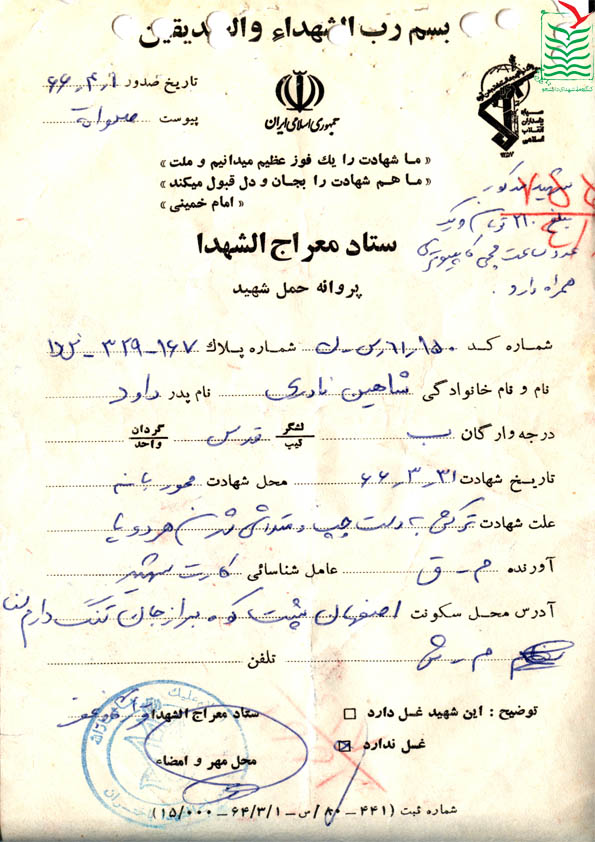 بسم رب الشهداء والصدیقین
تاریخ صدور ۶۶٫۴٫۱
پیوست
جمهوری اسلامی ایران
سپاه پاسداران انقلاب اسلامی
۱۳۵۷
« ما شهادت را یك فوز عظیم میدانیم و ملت »
« ما هم شهادت را بجان و دل قبول میکند »
« امام خمینی »
شهید مذکور
مبلغ ۲۱۰ تومان و یک
عدد ساعت مچی کامپیوتری
همراه دارد .
ستاد معراج الشهدا
پروانه حمل شهید
شماره کد ۱۵۰ر۶۱ر س ـ ل شماره پلاك ۱۶۷-۳۲۹-
نام و نام خانوادگی شاهین نادری نام پدر داود
درجه وارگان ب لشگر تیپ قدس گردان واحد
تاریخ شهادت ۶۶٫۳٫۳۱ محل شهادت محور بانه
علت شهادت ترکش به دست چپ و متلاشی شدن هر دو پا
آورنده م ـ ق عامل شناسائی کارت شهید
آدرس محل سکونت اصفهان پشت کوه برازجان تنگ دارم
م ـ ش تلفن
توضیح : این شهید غسل دارد ☐ ستاد معراج الشهدا
غسل ندارد ☒ محل مهر و امضاء
شماره ثبت (۴۴۱-۸۰/س-۶۴/۳/۱-۱۵/۰۰۰)